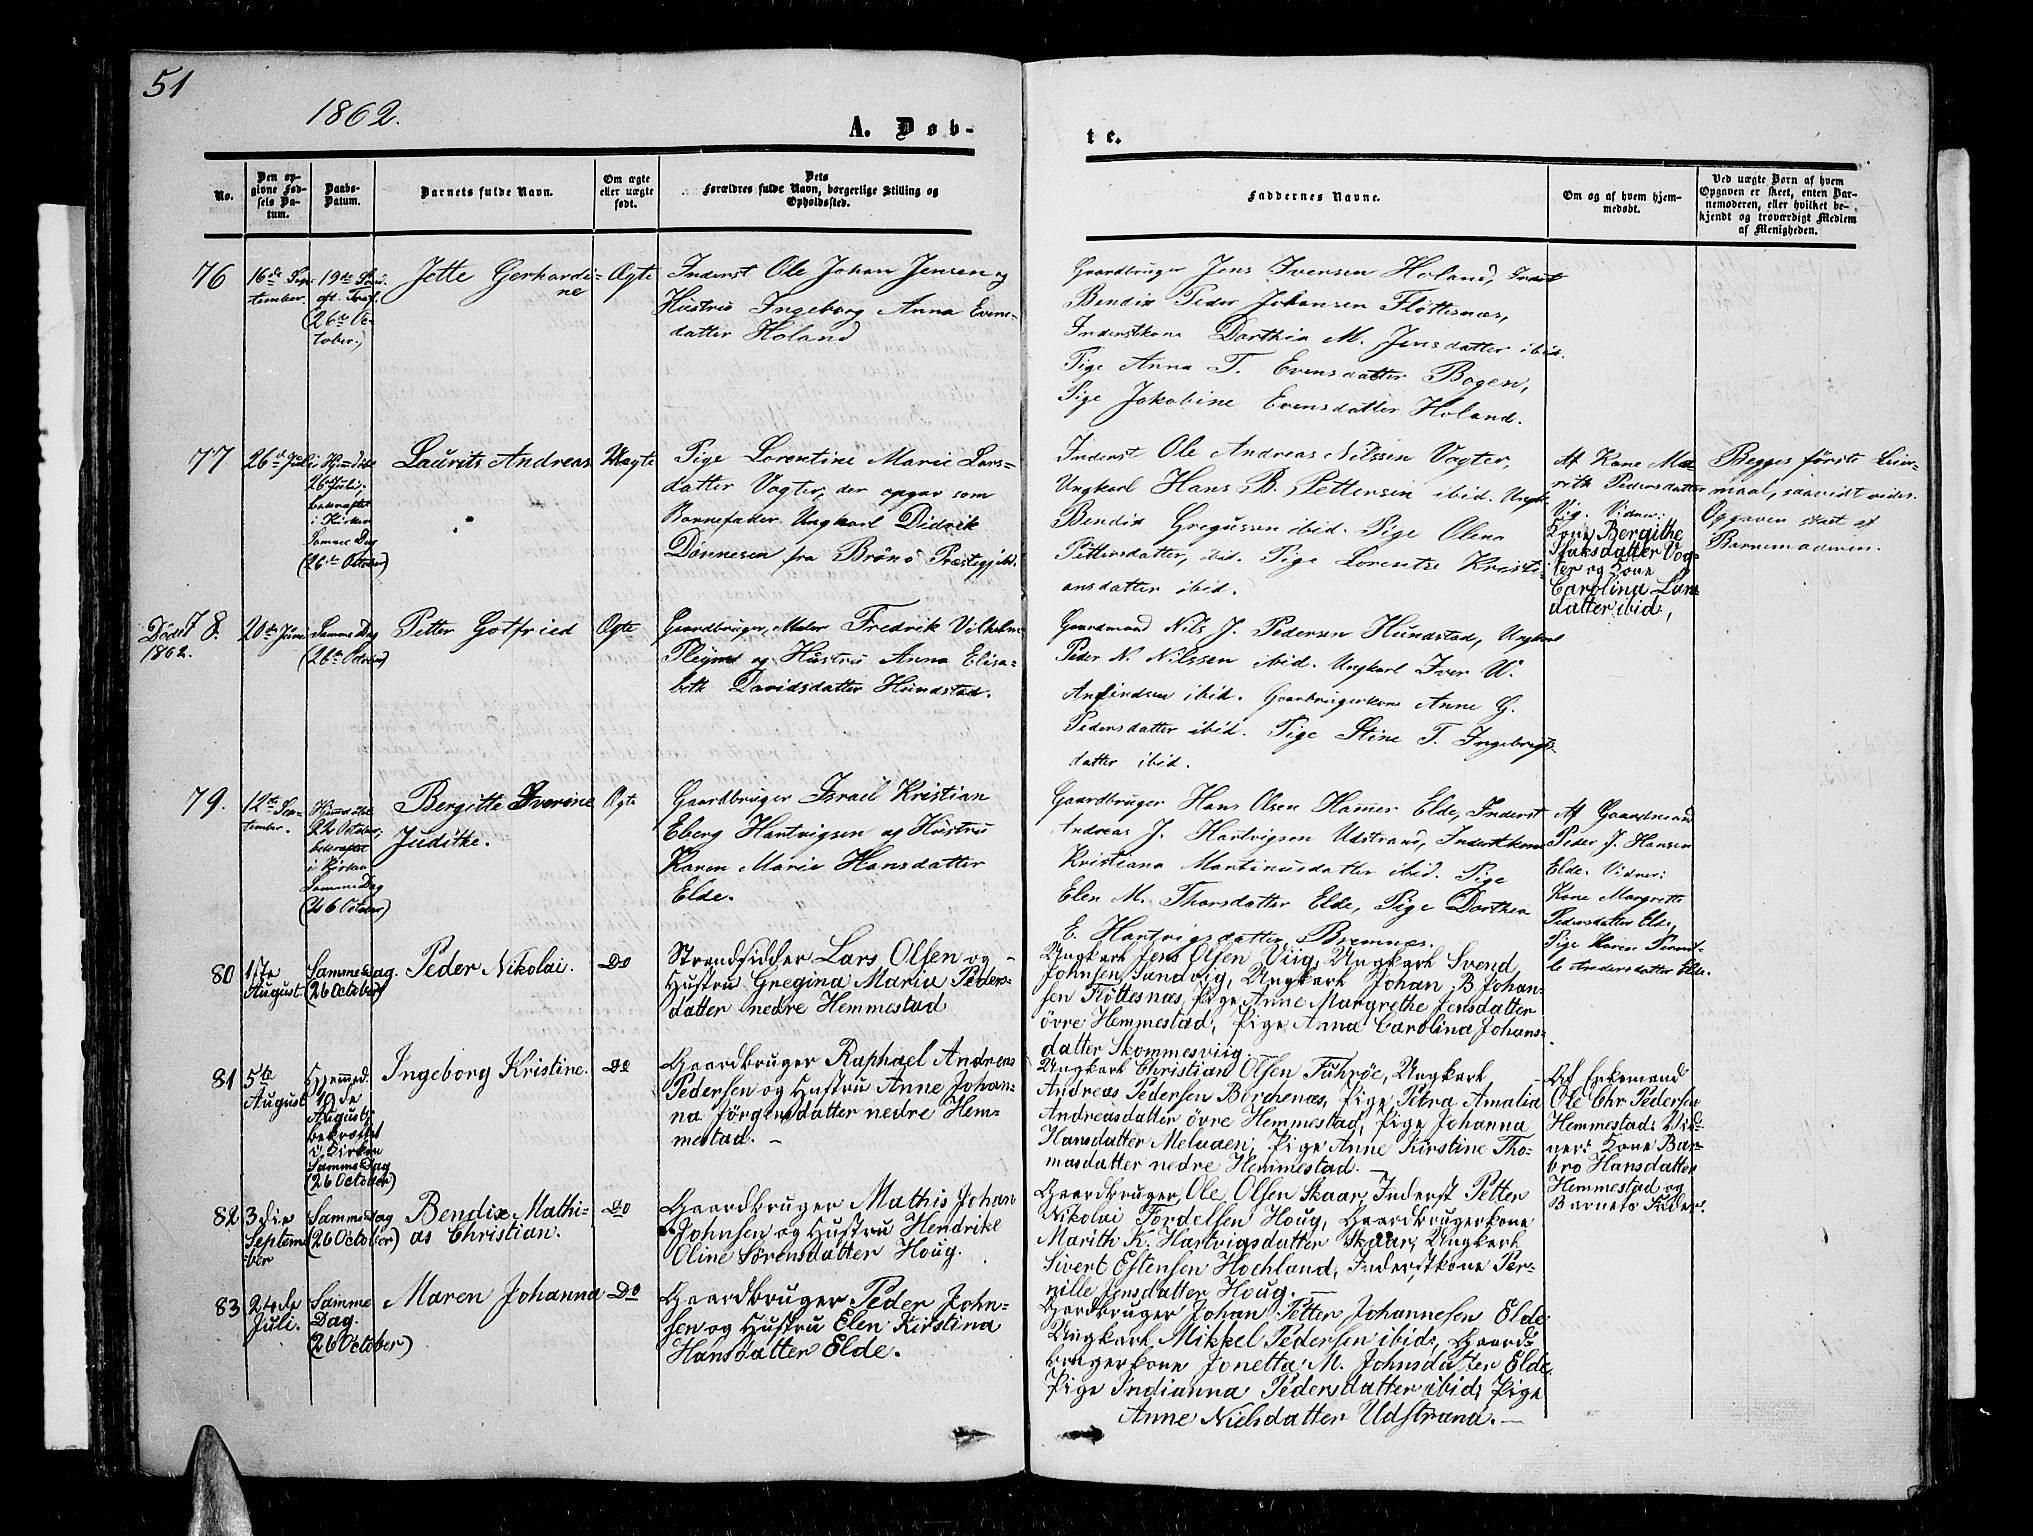 51
1862.
A. Døb-
te.
No.
Den op-
givne Fød-
sels Da-
tum.
Daabs-
Datum.
Barnets fulde Navn.
Om ægte
eller uægte
født.
Dets
Forældres fulde Navn, borgerlige Stilling og
Opholdssted.
Faddernes Navne.
Om og af hvem hjem-
medøbt.
Ved uægte Børn af hvem
Opgaven er skeet, enten Bar-
nemoderen, eller hvilket be-
kjendt og troværdigt Medlem
af Menigheden.
76
16de Sep-
tember.
19de Søn.
eft. Tref.
(26de Oc-
tober.)
Jette Gerhardi-
ne
Ægte
Inderst Ole Johan Jensen og
Hustru Ingeborg Anna Evens-
datter Holand
Gaardbruger Jens Ivensen Holand, Inderst
Bendix Peder Johansen Flöttesnæs,
Inderstkone Dorthia M. Jensdatter ibid.
Pige Anna T. Evensdatter Bogen,
Pige Jakobine Evensdatter Holand.
77
26de Juli
Hjemdöbt
26 Juli,
bekræftet
i Kirken
Samme Dag
(26de October)
Laurits Andreas
Uægte
Pige Lorentine Marie Lars-
datter Vogter, der opgav som
Barnefader Ungkarl Didrik
Dönnesen fra Brönö Præstegjeld.
Inderst Ole Andreas Nilssen Vogter,
Ungkarl Hans B. Pettersen ibid. Ungk.
Bendix Gregussen ibid. Pige Olena
Pettersdatter, ibid. Pige Lorentse Kristi-
ansdatter ibid.
Af Kone Ma-
rith Pedersdatter
Vig. Vidner:
Kone Bergithe
Isaksdatter Vog-
ter og Kone
Carolina Lars-
datter ibid,
Begges förste Leier-
maal, saavidt vides.
Opgaven skeet af
Barnemoderen.
Död
1862.
78.
20de Juni
Samme Dag
(26de October)
Petter Gotfried
Ægte
Gaardbruger, Maler Fredrik Vilhelm
Pleym og Hustru Anna Elisa-
beth Davidsdatter Hundstad.
Gaardmand Nils J. Pedersen Hundstad, Ungkarl
Peder N. Nilssen ibid. Ungkarl Iver U.
Anfindsen ibid. Gaarbrugerkone Anne G.
Pedersdatter ibid. Pige Stine T. Ingebrigts-
datter ibid.
79.
12te Sep-
tember.
Hjemdöbt
22 October,
bekræftet
i Kirken
Samme Dag
(26 October)
Bergitte Sverine
Judithe.
Ægte
Gaardbruger Israel Kristian
Eberg Hartvigsen og Hustru
Karen Marie Hansdatter
Elde.
Gaardbruger Hans Olsen Hamer Elde, Inderst
Andreas J. Hartvigsen Udstrand, Inderstkone
Kristiana Martinusdatter ibid. Pige
Elen M. Thorsdatter Elde, Pige Dorthea
E. Hartvigsdatter Bremnæs.
Af Gaardmand
Peder J. Hansen
Elde. Vidner:
Kone Margrethe
Pedersdatter Elde,
Pige Karen Pernil-
le Andersdatter Elde.
80
17de
August
Samme Dag.
(26 October)
Peder Nikolai.
Do
Strandsidder Lars Olsen og
Hustru Gregina Maria Peders-
datter nedre Hemmestad
Ungkarl Jens Olsen Viig, Ungkarl Svend
Johnsen Sandvig, Ungkarl Johan B Johan-
sen Flöttesnæs, Pige Anne Margrethe Jensdatter
övre Hemmestad, Pige Anna Carolina Johans-
datter Skommesviig.
81
5te
August
Hjemmed.
10de
August;
bekræftet
i Kirken
Samme Dag
(26 October)
Ingeborg Kristine.
Do
Gaardbruger Raphael Andreas
Pedersen og Hustru Anne Johan-
na Jörgensdatter nedre Hem-
mestad. —
Ungkarl Christian Olsen Fuhröe, Ungkarl
Andreas Pedersen Borchenæs, Pige Petra Amalia
Andreasdatter övre Hemmestad, Pige Johanna
Hansdatter Melvaen, Pige Anne Kirstine Tho-
masdatter nedre Hemmestad. —
Af Enkemand
Ole Chr Pedersen
Hemmestad; Vid-
ner: Kone Bar-
bro Hansdatter
Hemmestad og
Barnets Fader.
82
3die
Septem-
ber
Samme Dag
(26 October)
Bendix Mathi-
as Christian.
Do
Gaardbruger Mathis Johan
Johnsen og Hustru Hendrike
Oline Sörensdatter Houg.
Gaardbruger Ole Olsen Skaar, Inderst Petter
Nikolai Tordelsen Houg, Gaardbrugerkone
Marith K. Hartvigsdatter Skaar, Ungkarl
Sivert Estensen Hochland, Inderstkone Per-
nille Jensdatter Houg. —
83
24de
Juli.
Samme
Dag.
(26 October)
Maren Johanna
Do
Gaardbruger Peder John-
sen og Hustru Elen Kirstina
Hansdatter Elde.
Gaardbruger Johan Petter Johannesen Elde
Ungkarl Mikkel Pedersen ibid; Gaard-
brugerkone Jonetta M. Johnsdatter Elde,
Pige Indianna Pedersdatter ibid; Pige
Anne Nielsdatter Udstrand. —